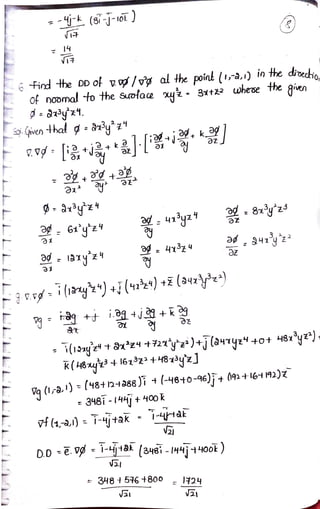 = -4j-k (8i-j-10k)
√17
= 14
√17
Find the DD of ∇.∇φ / ∇²φ at the point (1,-2,1) in the direction
of normal to the surface xy²z = 3x+z² where the given
φ = 2x³y²z⁴.
Given that φ = 2x³y²z⁴
∇.∇φ = [i ∂/∂x + j ∂/∂y + k ∂/∂z] . [i ∂φ/∂x + j ∂φ/∂y + k ∂φ/∂z]
= ∂²φ/∂x² + ∂²φ/∂y² + ∂²φ/∂z²
φ = 2x³y²z⁴
∂φ/∂x = 6x²y²z⁴ ∂φ/∂y = 4x³yz⁴ ∂φ/∂z = 8x³y²z³
∂²φ/∂x = 12xy²z⁴ ∂²φ/∂y = 4x³z⁴ ∂²φ/∂z = 24x³y²z²
∇.∇φ = i(12xy²z⁴) + j(4x³z⁴) + k(24x³y²z²)
∇g = i ∂g/∂x + j ∂g/∂y + k ∂g/∂z
= i(12y²z⁴ + 12x²z⁴ + 72x²y²z²) + j(24xyz⁴ + 0 + 48x³yz²) +
k(48xy²z³ + 16x³z³ + 48x³y²z]
∇g (1,-2,1) = (48+12+288)i + (-48+0-96)j + (192+16+192)k
= 348i - 144j + 400k
∇f (1,-2,1) = i-4j+2k = i-4j+2k
√21
D.D = e.∇φ = i-4j+2k (348i - 144j + 400k)
√21
= 348 + 576 + 800 = 1724
√21 √21